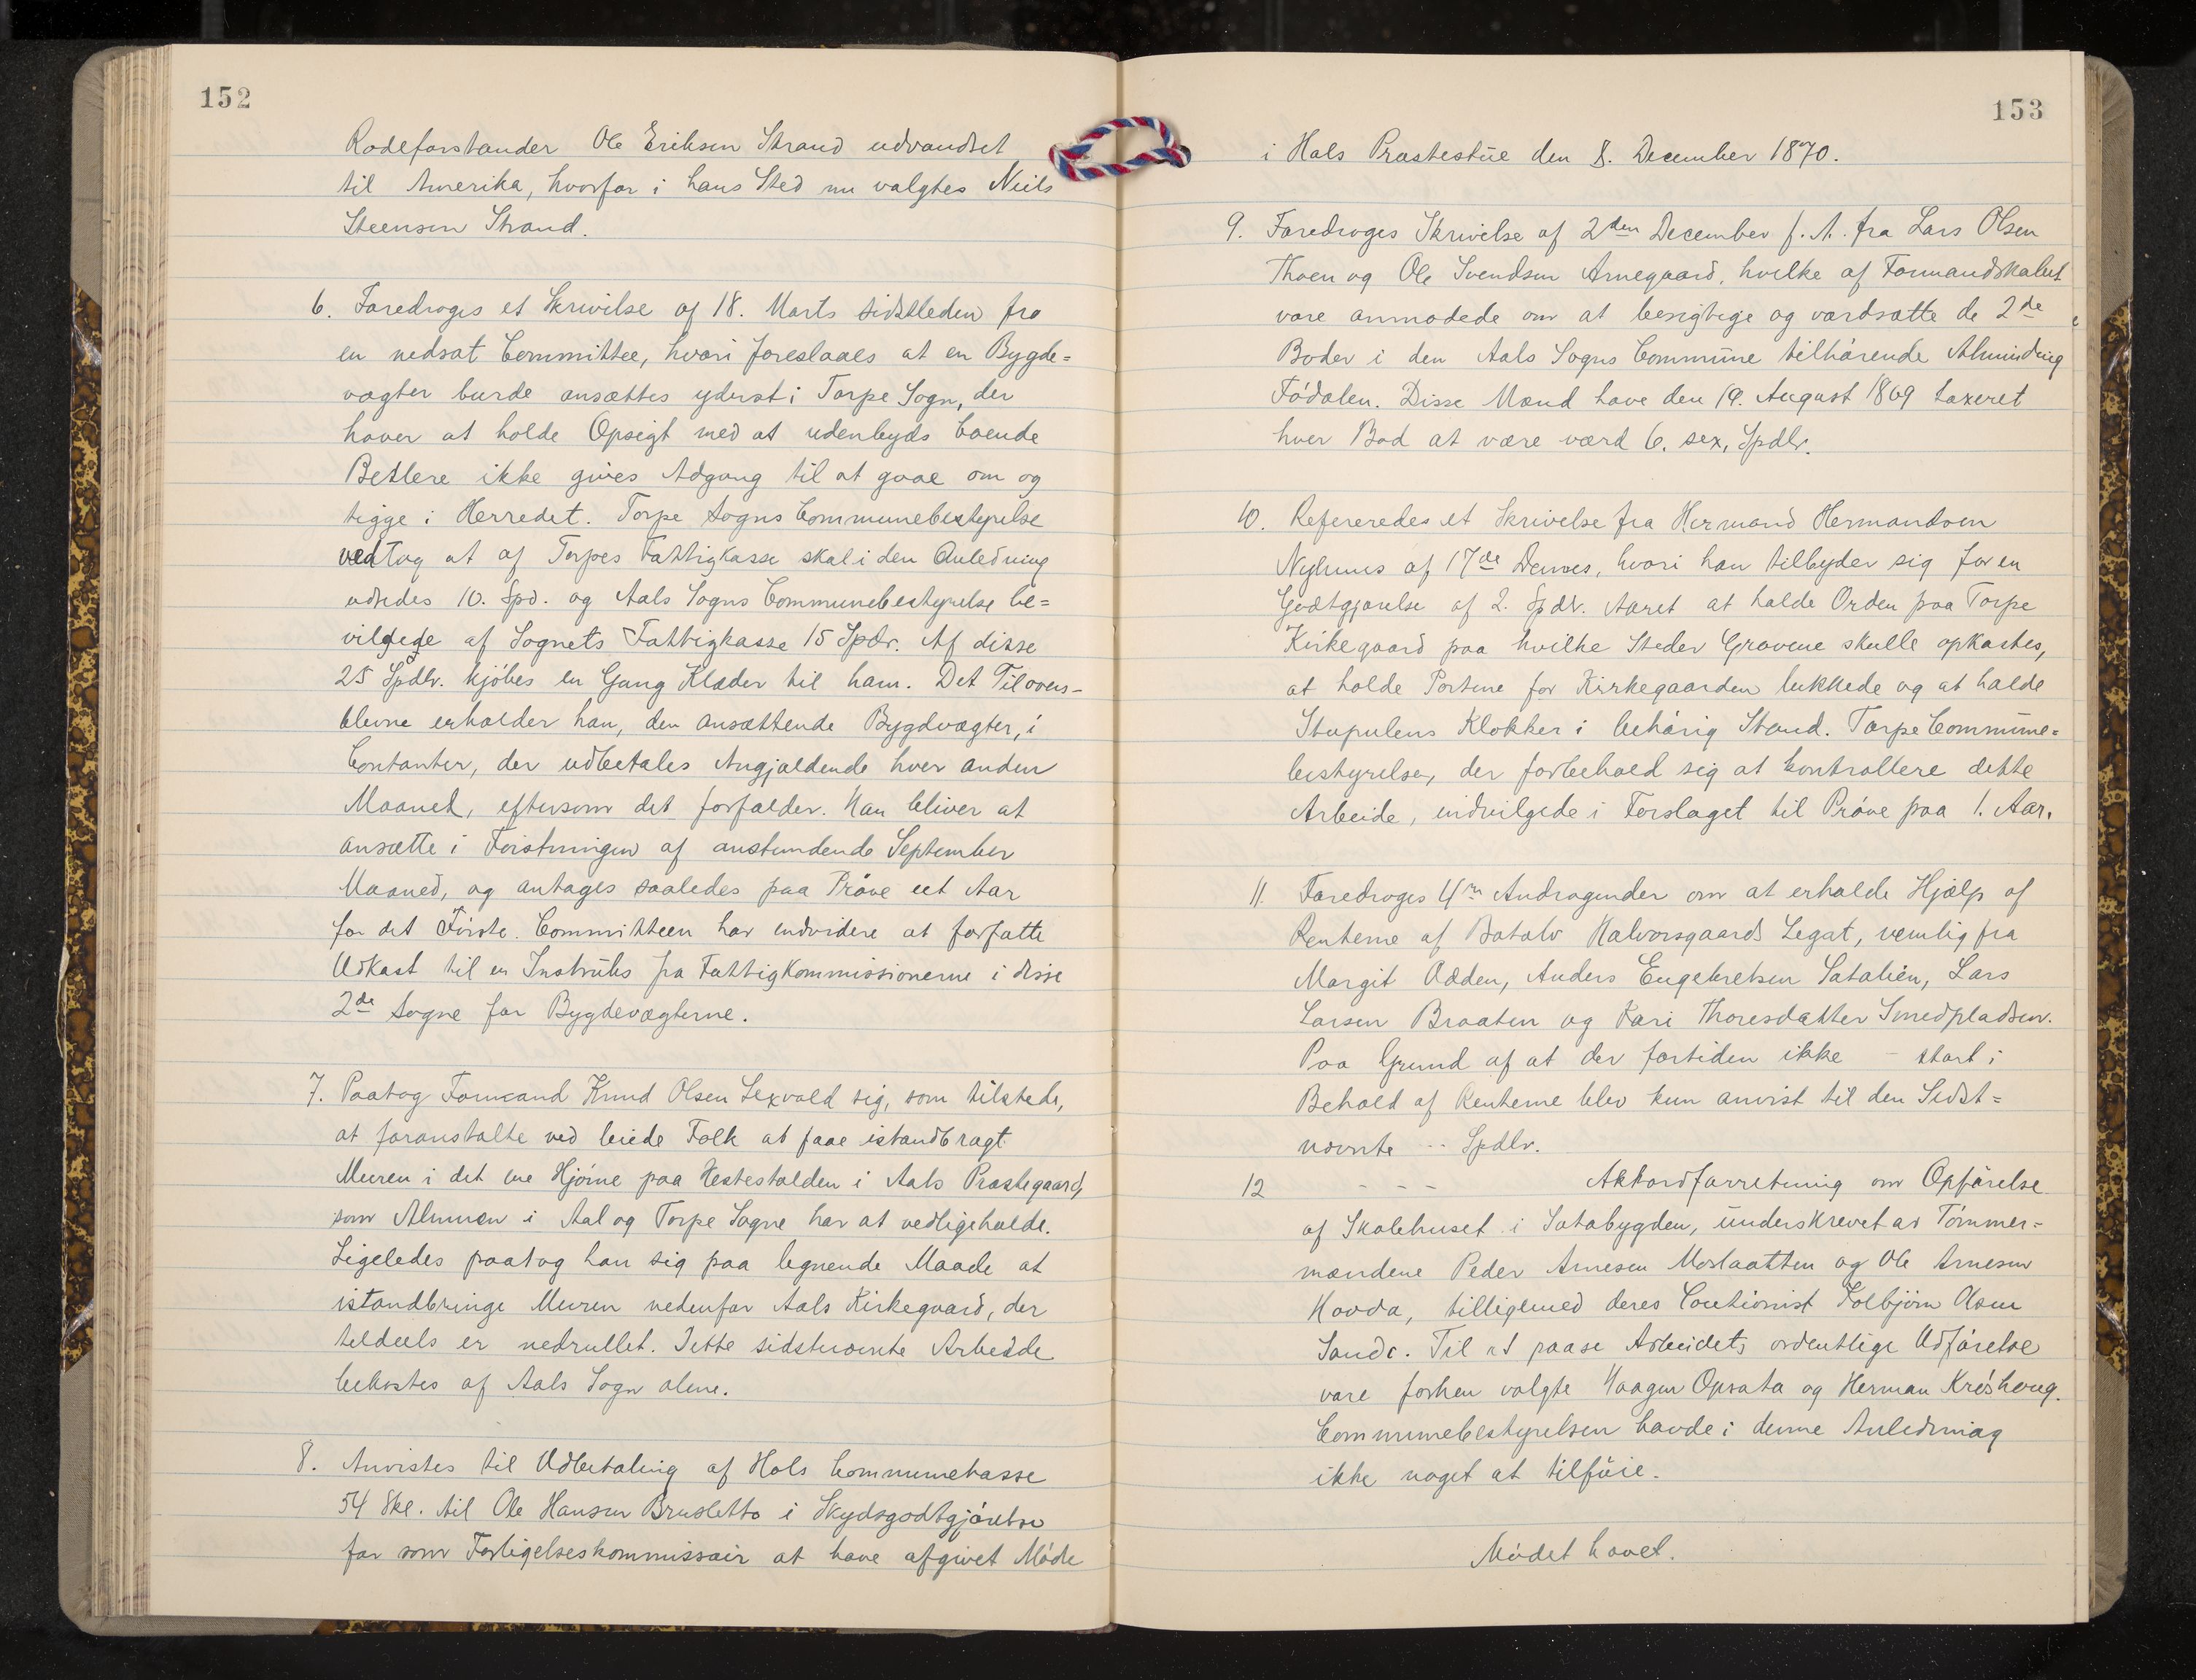 152
Rodeforstander Ole Eriksen Strand udvandret
til Amerika, hvorfor i hans Sted nu valgtes Niels
Steensen Strand.
6. Foredroges et Skrivelse af 18. Marts sidstleden fra
en nedsat Committee, hvori foreslaaes at en Bygde=
vægter burde ansættes yderst i Torpe Sogn, der
haver at holde Opsigt med at udenbyds boende
Betlere ikke gives Adgang til at gaae om og
tigge i Herredet. Torpe Sogns Communebestyrelse
vedtog at af Torpes Fattigkasse skal i den Anledning
udredes 10. Spd. og Aals Sogns Communebestyrelse be=
vilgede af Sognets Fattigkasse 15 Spdr. Af disse
25 Spdlr. kjöbes en Gang Klæder til ham. Det Tilovers-
blevne erholder han, den ansættende Bygdvægter, i
Contanter, der udbetales Angjældende hver anden
Maaned, eftersom det forfalder. Han bliver at
ansætte i Foistningen af anstundende September
Maaned, og antages saaledes paa Pröve eet Aar
for det Förste. Committeen har endvidere at forfatte
Udkast til en Instrüks fra Fattigkommissionerne i disse
2de Sogne for Bygdevægterne.
7. Paatog Formand Knud Olsen Lexvold sig, som tilstede,
at foranstalte ved leiede Folk at faae istandbragt
Muren i det ene Hjörne paa Hestestalden i Aals Præstegaard,
som Almuen i Aal og Torpe Sogne har at vedligeholde.
Ligeledes paatog han sig paa lignende Maade at
istandbringe Muren nedenfor Aals Kirkegaard, der
teldeels er nedrullet. Dette sidstnævnte Arbeide
bekostes af Aals Sogn alene.
8. Anvistes til Udbetaling af Hols Communekasse
54 Skl. til Ole Hansen Brusletto i Skydsgodtgjörelse
for som Forligelseskommissair at have afgivet Möde
153
i Hols Præstestüe den 8. December 1870.
9. Foredroges Skrivelse af 2den December f. A. fra Lars Olsen
Thoen og Ole Svendsen Arnegaard, hvilke af Formandskabet
vare anmodede om at besigtige og værdsætte de 2de
Boder i den Aals Sogns Commüne tilhörende Alminding
Födalen. Disse Mænd have den 19. August 1869 taxeret
hver Bod at være værd 6. sex, Spdlr.
10. Refereredes et Skrivelse fra Hermand Hermandsen
Nyhuus af 17de Dennes, hvori han tilbyder sig for en
Godtgjörelse af 2. Spdlr. Aaret at holde Orden paa Torpe
Kirkegaard paa hvilke Steder Gravene skulle opkastes,
at holde Portene for Kirkegaarden lukkede og at holde
Stupulens Klokker i behörig Stand. Torpe Commüne=
bestyrelse, der forbehold sig at kontrollere dette
Arbeide, indvilgede i Forslaget til Pröve paa 1. Aar.
11. Foredroges 4re Andragender om at erholde Hjælp af
Renterne af Botolv Halvorsgaards Legat, nemlig fra
Margit Ødden, Anders Engebretsen Satalien, Lars
Larsen Braaten og Kari Thoresdatter Smedpladsen.
Paa Grund af at der fortiden ikke - stort i
Behold af Renterne blev kun anvist til den Sidst=
nævnte -- Spdlr.
12 - - - Akkordforretning om Opförelse
af Skolehuset i Satabygden, ünderskrevet av Tömmer=
mændene Peder Arnesen Moslaatten og Ole Arnesen
Hovda, tilligemed deres Coutionist Tolbjörn Olsen
Sando. Til at paase Arbeidets ordentlige Udförelse
vare forhen valgte Haagen Opsata og Herman Kröshoug.
Communebestyrelsen havde i denne Anledning
ikke noget at tilföie.
Mödet hævet.